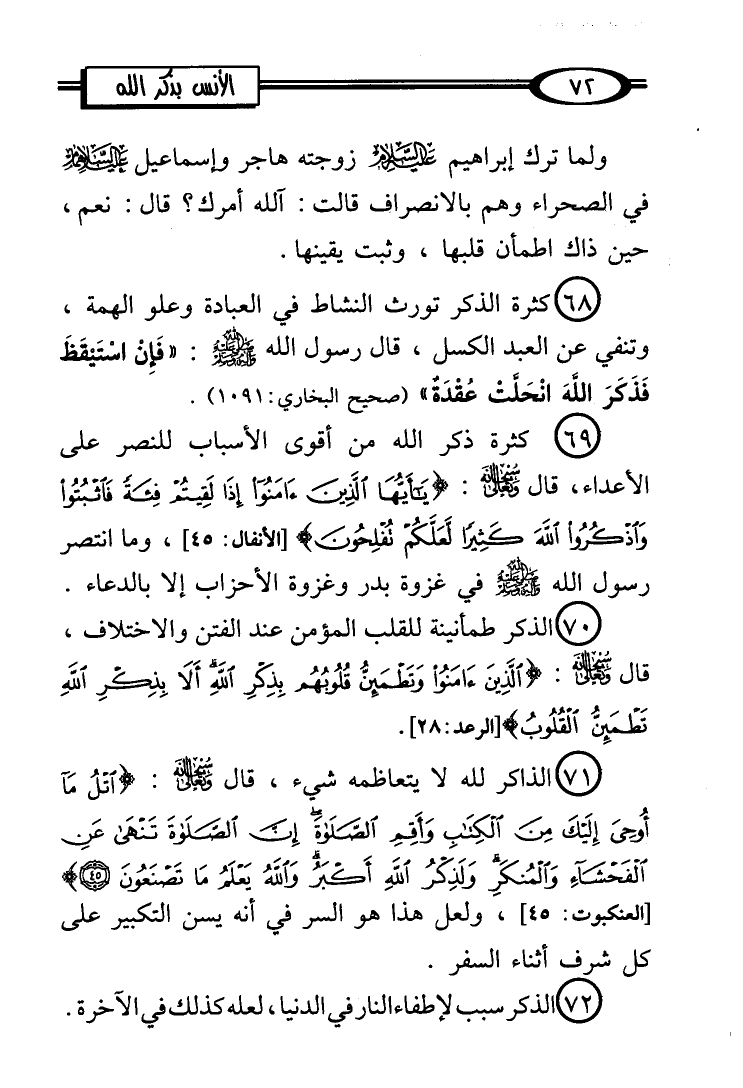 ٧٢
الأنس بذكر الله
ولما ترك إبراهيم عليه السلام زوجته هاجر وإسماعيل عليهما السلام
في الصحراء وهم بالانصراف قالت : آلله أمرك؟ قال : نعم ،
حين ذاك اطمأن قلبها ، وثبت يقينها .
٦٨ كثرة الذكر تورث النشاط في العبادة وعلو الهمة ،
وتنفي عن العبد الكسل ، قال رسول الله ﷺ : «فَإِنْ اسْتَيْقَظَ
فَذَكَرَ اللَّهَ انْحَلَّتْ عُقْدَةٌ» (صحيح البخاري: ١٠٩١) .
٦٩ كثرة ذكر الله من أقوى الأسباب للنصر على
الأعداء، قال سبحانه وتعالى : ﴿يَٰٓأَيُّهَا ٱلَّذِينَ ءَامَنُوٓا۟ إِذَا لَقِيتُمْ فِئَةً فَٱثْبُتُوا۟
وَٱذْكُرُوا۟ ٱللَّهَ كَثِيرًا لَّعَلَّكُمْ تُفْلِحُونَ﴾ [الأنفال: ٤٥] ، وما انتصر
رسول الله ﷺ في غزوة بدر وغزوة الأحزاب إلا بالدعاء .
٧٠ الذكر طمأنينة للقلب المؤمن عند الفتن والاختلاف ،
قال سبحانه وتعالى : ﴿ٱلَّذِينَ ءَامَنُوا۟ وَتَطْمَئِنُّ قُلُوبُهُم بِذِكْرِ ٱللَّهِ ۗ أَلَا بِذِكْرِ ٱللَّهِ
تَطْمَئِنُّ ٱلْقُلُوبُ﴾[الرعد: ٢٨].
٧١ الذاكر لله لا يتعاظمه شيء ، قال سبحانه وتعالى : ﴿ٱتْلُ مَآ
أُوحِىَ إِلَيْكَ مِنَ ٱلْكِتَٰبِ وَأَقِمِ ٱلصَّلَوٰةَ ۖ إِنَّ ٱلصَّلَوٰةَ تَنْهَىٰ عَنِ
ٱلْفَحْشَآءِ وَٱلْمُنكَرِ ۗ وَلَذِكْرُ ٱللَّهِ أَكْبَرُ ۗ وَٱللَّهُ يَعْلَمُ مَا تَصْنَعُونَ ٤٥﴾
[العنكبوت: ٤٥] ، ولعل هذا هو السر في أنه يسن التكبير على
كل شرف أثناء السفر .
٧٢ الذكر سبب لإطفاء النار في الدنيا، لعله كذلك في الآخرة .